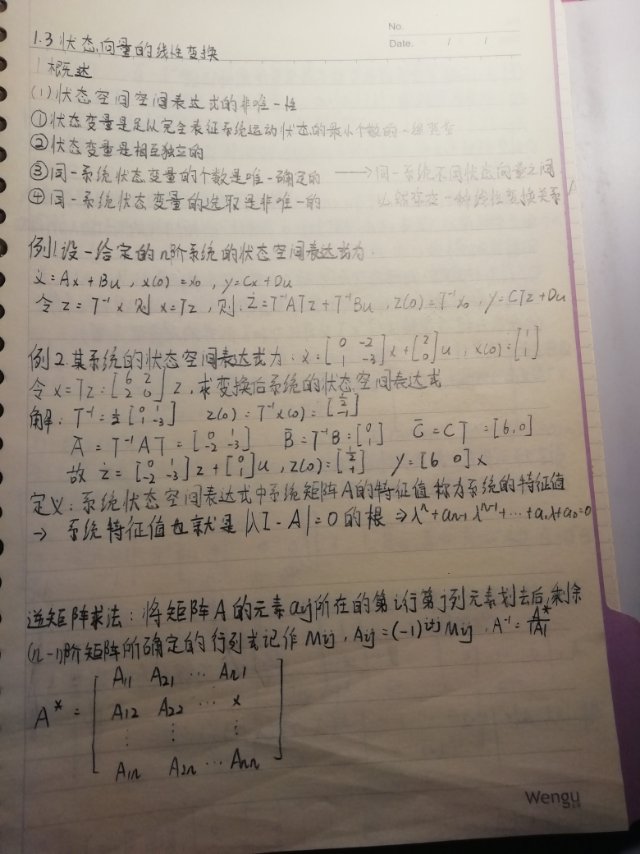 No.
Date. / /
1.3 状态向量的线性变换
1 概述
(1) 状态空间空间表达式的非唯一性
① 状态变量是足以完全表征系统运动状态的最小个数的一组变量
② 状态变量是相互独立的
③ 同一系统状态变量的个数是唯一确定的 → 同一系统不同状态向量之间
④ 同一系统状态变量的选取是非唯一的 一种线性变换关系
例1. 设一给定的n阶系统的状态空间表达式为
ẋ = Ax + Bu , x(0) = x₀ , y = Cx + Du
令 z = T⁻¹x 则 x = Tz , 则 ż = T⁻¹ATz + T⁻¹Bu , z(0) = T⁻¹x₀ , y = CTz + Du
例2. 某系统的状态空间表达式为: ẋ = [0 -2; 1 -3]x + [2; 0]u , x(0) = [1; 1]
令 x = Tz = [6 2; 2 0]z , 求变换后系统的状态空间表达式
解: T⁻¹ = ½[0 1; 1 -3] z(0) = T⁻¹x(0) = [½; -1]
Ā = T⁻¹AT = [0 1; -2 -3] B̄ = T⁻¹B = [0; 1] C̄ = CT = [6, 0]
故 ż = [0 1; -2 -3]z + [0; 1]u , z(0) = y = [6 0]x
定义: 系统状态空间表达式中系统矩阵A的特征值称为系统的特征值
→ 系统特征值也就是 |λI - A| = 0 的根 ⇒ λⁿ + aₙ₋₁λⁿ⁻¹ + ⋯ + a₁λ + a₀ = 0
逆矩阵求法: 将矩阵A的元素aij所在的第i行第j列元素划去后, 剩余
(n-1)阶矩阵所确定的行列式记作Mij , Aij = (-1)^(i+j) Mij , A⁻¹ = A*/|A|
A₁₁ A₂₁ ⋯ Aₙ₁
A* = A₁₂ A₂₂ ⋯ x
⋮ ⋮ ⋮
A₁ₙ A₂ₙ ⋯ Aₙₙ
Wengu